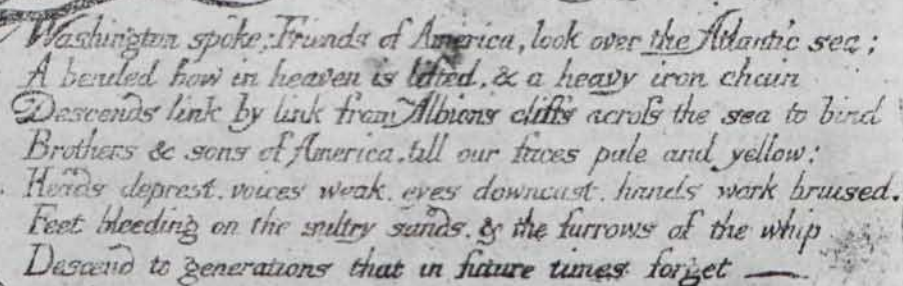 Washington spoke; Friends of America, look over the Atlantic sea;
A bended bow in heaven is lifted, & a heavy iron chain
Descends link by link from Albions cliffs acroſs the sea to bind
Brothers & sons of America, till our faces pale and yellow;
Heads deprest, voices weak, eyes downcast, hands work bruised,
Feet bleeding on the sultry sands, & the furrows of the whip
Descend to generations that in future times forget —